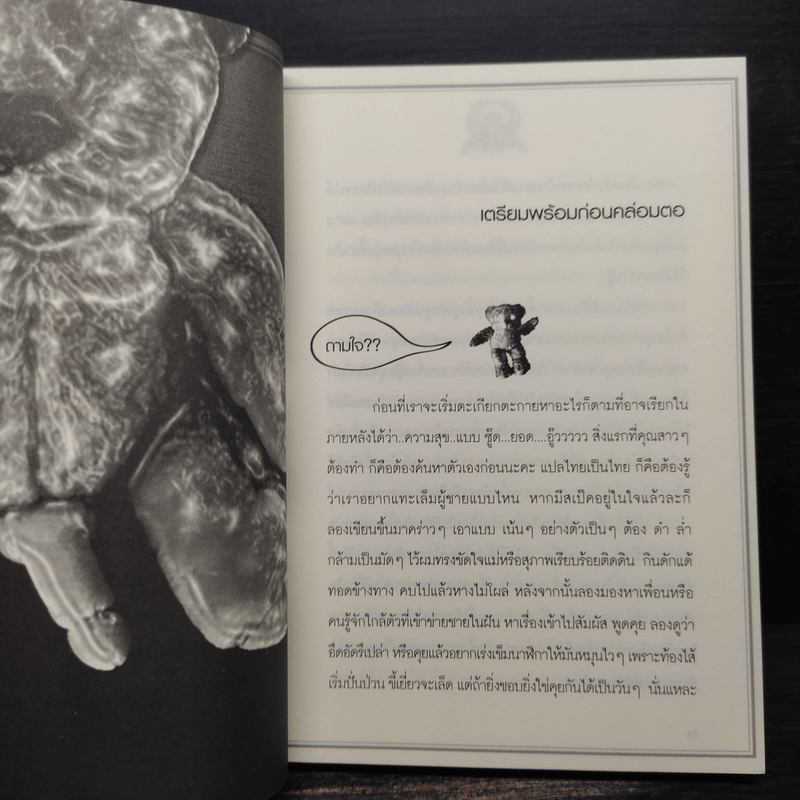 เตรียมพร้อมก่อนคล่อมตอ
ถามใจ??
ก่อนที่เราจะเริ่มตะเกียกตะกายหาอะไรก็ตามที่อาจเรียกใน
ภายหลังได้ว่า..ความสุข..แบบ ซู๊ด...ยอด....อู๊ววววว สิ่งแรกที่คุณสาวๆ
ต้องทำ ก็คือต้องค้นหาตัวเองก่อนนะคะ แปลไทยเป็นไทย ก็คือต้องรู้
ว่าเราอยากแทะเล็มผู้ชายแบบไหน หากมีสเป๊คอยู่ในใจแล้วละก็
ลองเขียนขึ้นมาคร่าวๆ เอาแบบ เน้นๆ อย่างตัวเป็นๆ ต้อง ดำ ล่ำ
กล้ามเป็นมัดๆ ไว้ผมทรงขัดใจแม่หรือสุภาพเรียบร้อยติดดิน กินดักแด้
ทอดข้างทาง คบไปแล้วหางไม่โผล่ หลังจากนั้นลองมองหาเพื่อนหรือ
คนรู้จักใกล้ตัวที่เข้าข่ายชายในฝัน หาเรื่องเข้าไปสัมผัส พูดคุย ลองดูว่า
อึดอัดรึเปล่า หรือคุยแล้วอยากเร่งเข็มนาฬิกาให้มันหมุนไวๆ เพราะท้องไส้
เริ่มปั่นป่วน ขี้เยี่ยวจะเล็ด แต่ถ้ายิ่งชอบยิ่งใช่คุยกันได้เป็นวันๆ นั่นแหละ